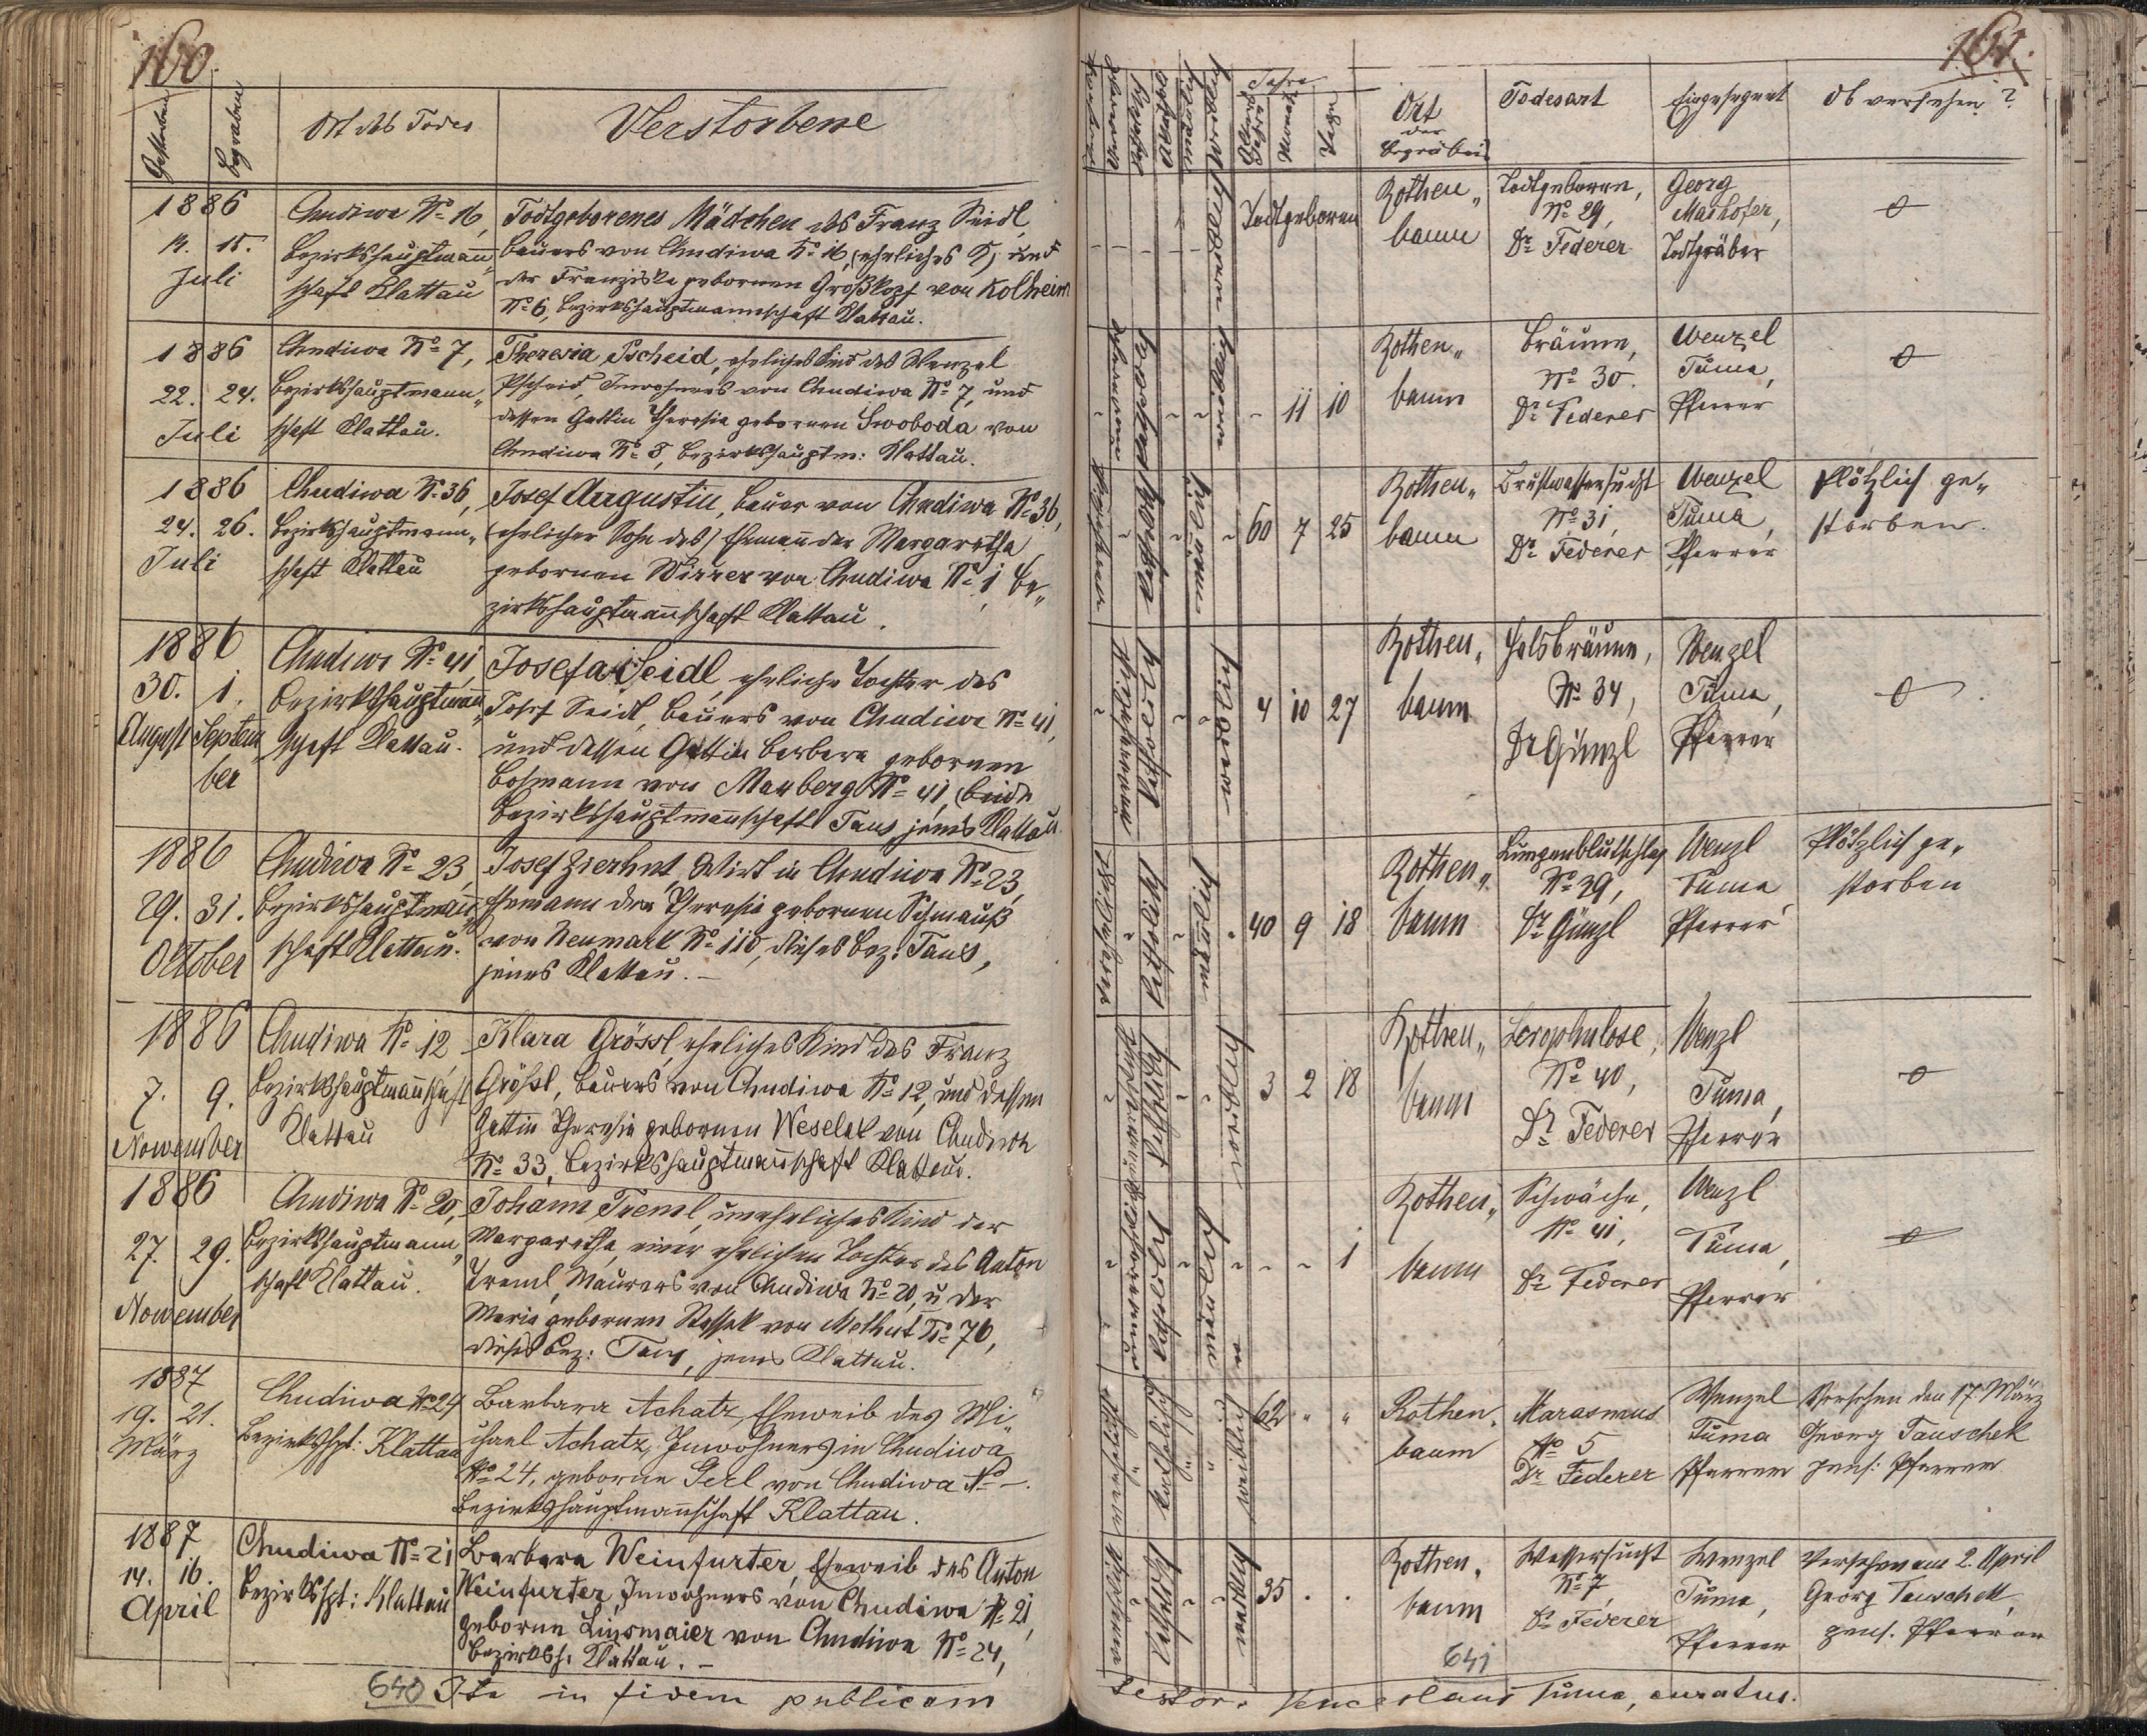 160.
Gestorben
Begraben
Ort des Todes
Verstorbene
1886
14. 15.
Juli
Chudiwa No 16,
Bezirkshauptmann„
schaft Klattau
Todtgeborenes Mädchen des Franz Seidl,
Bauers von Chudiwa No 16, (eheliches K) und
der Franziska gebornen Großkopf von Kolheim
No 6, Bezirkshauptmannschaft Klattau.
1886
22. 24.
Juli
Chudiwa No 7,
Bezirkshauptmann„
schaft Klattau.
Theresia Pscheid, eheliches Kind des Wenzel
Pscheid, Inwohners von Chudiwa No 7, und
dessen Gattin Theresia gebornen Swoboda von
Chudiwa No 8, Bezirkshauptm: Klattau.
1886
24. 26.
Juli
Chudiwa No 36,
Bezirkshauptmann„
schaft Klattau
Josef Augustin, Bauer von Chudiwa No 36,
(ehelicher Sohn des) Ehemañ der Margaretha
gebornen Wirrer von Chudiwa No 1, Be„
zirkshauptmañschaft Klattau.
1886
30. 1.
August Septem
ber
Chudiwa No 41,
Bezirkshauptmañ„
schaft Klattau.
Josefa Seidl, eheliche Tochter des
Josef Seidl, Bauers von Chudiwa No 41,
und dessen Gattin Barbara gebornen
Bohmann von Mauberg No 41, (beide
Bezirkshauptmañschaft Taus jenes Klattau.
1886
29. 31.
Oktober
Chudiwa No 23,
Bezirkshauptmañ„
schaft Klattau.
Josef Zierhut, Wirt in Chudiwa No 23,
Ehemann der Theresia gebornen Schmauß
von Neumark No 110, dieses Bez: Taus,
jenes Klattau. –
1886
7. 9.
Nowember
Chudiwa No 12,
Bezirkshauptmañschaft
Klattau
Klara Grössl, eheliches Kind des Franz
Größl, Bauers von Chudiwa No 12, und dessen
Gattin Theresia gebornen Weselak von Chudiwa
No 33, Bezirkshauptmañschaft Klattau.
1886
27. 29.
Nowember
Chudiwa No 20,
Bezirkshauptmann„
schaft Klattau.
Johann Treml, uneheliches Kind der
Margaretha, einer ehelichen Tochter des Anton
Treml, Maurers von Chudiwa No 20, u der
Maria gebornen Stassek von Methut No 76,
dieses Bez: Taus, jenes Klattau.
1887
19. 21.
März
Chudiwa No 24
Bezirkshpt: Klattau
Barbara Achatz, Eheweib des Mi„
chael Achatz, Inwohners in Chudiwa
No 24, geborne Gerl von Chudiwa No –.
Bezirkshauptmañschaft Klattau.
1887
14. 16.
April
Chudiwa No 21
Bezirkshpt: Klattau
Barbara Weinfurter, Eheweib des Anton
Weinfurter, Inwohners von Chudiwa No 21,
geborne Linsmaier von Chudiwa No 24,
Bezirksh. Klattau. –
640 Ita in fidem publicam
161.
Jahre
Monate
Tage
Ort
der
Begräbniß
Todesart
Eingesegnet
Ob versehen?
Todtgeboren
Rothen„
baum
Todtgeboren,
No 29,
Dr Federer
Georg
Maihofer,
Todtgräber
katholisch
11 10
Rothen„
baum
Bräune,
No 30.
Dr Federer
Wenzel
Tuma,
Pfarrer
katholisch
60 7 25
Rothen„
baum
Brustwassersucht
No 31,
Dr Federer
Wenzel
Tuma,
Pfarrer
Plötzlich ge„
storben.
katholisch
4 10 27
Rothen„
baum
Halsbräune,
No 34,
Dr Günzl
Wenzel
Tuma,
Pfarrer
katholisch
40 9 18
Rothen„
baum
Lungenblutschlag
No 39,
Dr Günzl
Wenzl
Tuma,
Pfarrer
Plötzlich ge„
storben
katholisch
3 2 18
Rothen„
baum
Scrophulose,
No 40,
Dr Federer
Wenzl
Tuma,
Pfarrer
katholisch
1
Rothen„
baum
Schwäche,
No 41,
Dr Federer
Wenzl
Tuma,
Pfarrer
katholisch
weiblich
62 " "
Rothen„
baum
Marasmus
No 5
Dr Federer
Wenzel
Tuma
Pfarrer
Versehen den 17. März
Georg Tauschek
pens: Pfarrer
katholisch
35 . .
Rothen„
baum
Wassersucht
No 7,
Dr Federer
Wenzel
Tuma,
Pfarrer
Versehen am 2. April
Georg Tauschek,
pens. Pfarrer
641
testor. Venceslaus Tuma, curatus.